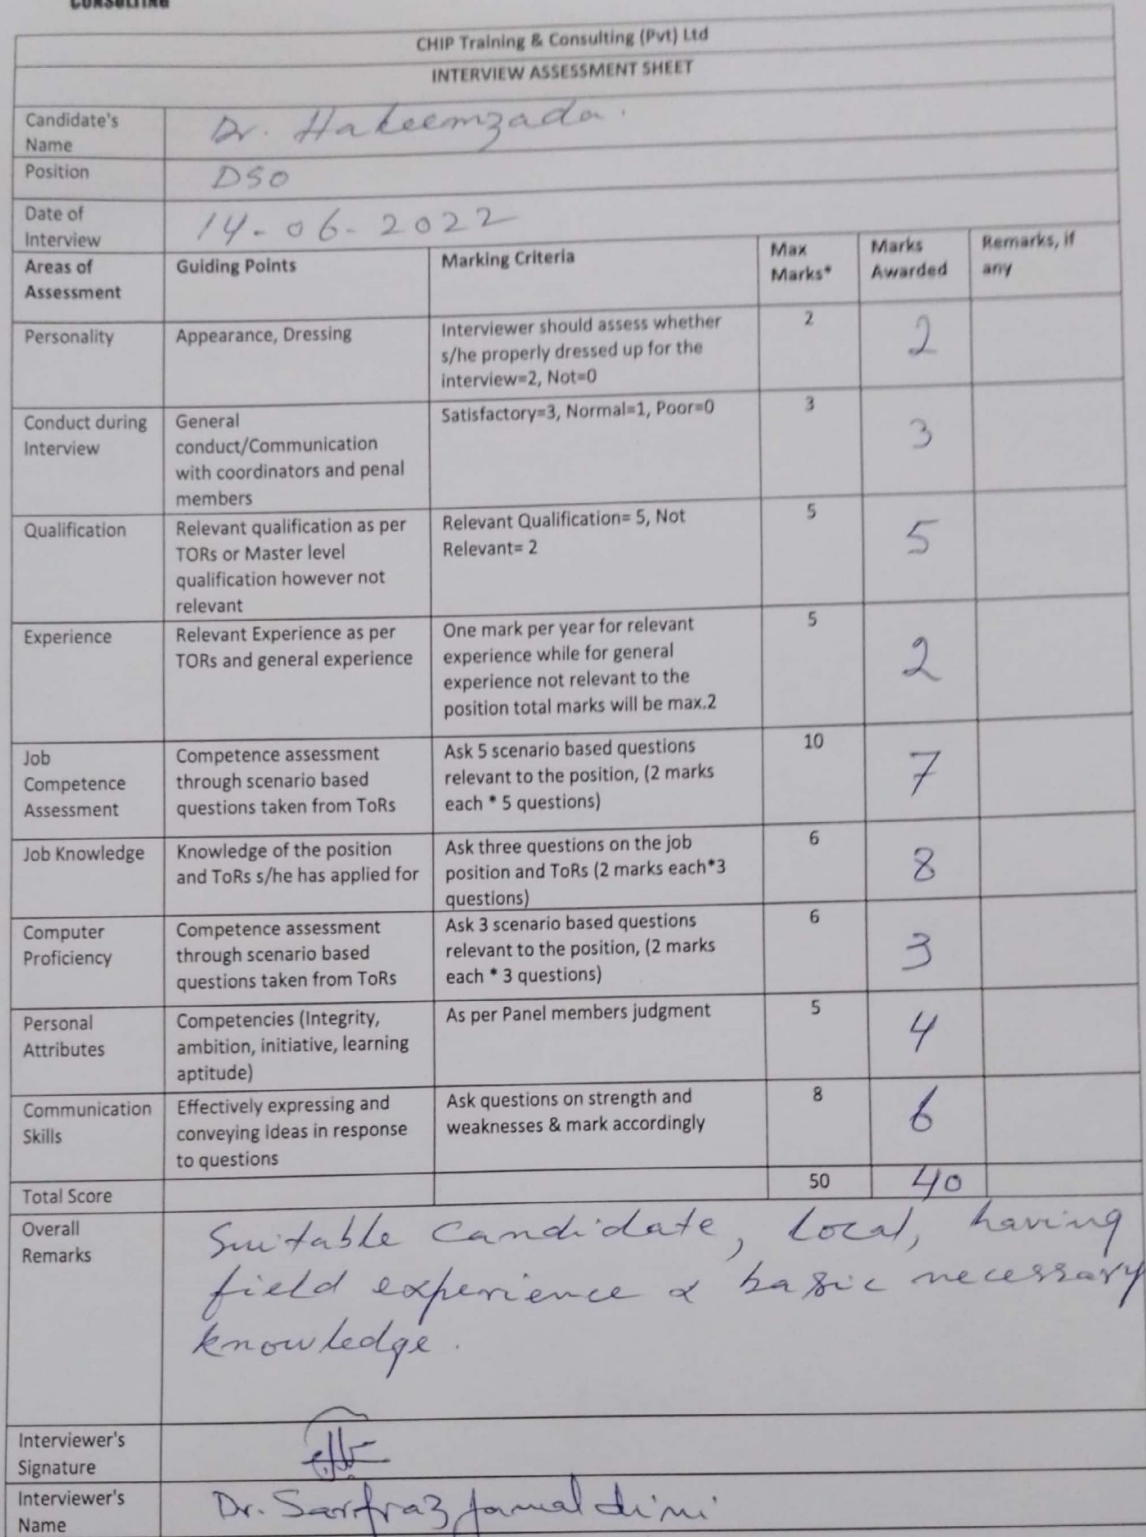 CONSULTING
CHIP Training & Consulting (Pvt) Ltd
INTERVIEW ASSESSMENT SHEET
Candidate's
Name
Dr. Hakeemzada.
Position
DSO
Date of
Interview
14-06-2022
Areas of
Assessment
Guiding Points
Marking Criteria
Max
Marks*
Marks
Awarded
Remarks, if
any
Personality
Appearance, Dressing
Interviewer should assess whether
s/he properly dressed up for the
interview=2, Not=0
2
2
Conduct during
Interview
General
conduct/Communication
with coordinators and penal
members
Satisfactory=3, Normal=1, Poor=0
3
3
Qualification
Relevant qualification as per
TORs or Master level
qualification however not
relevant
Relevant Qualification= 5, Not
Relevant= 2
5
5
Experience
Relevant Experience as per
TORs and general experience
One mark per year for relevant
experience while for general
experience not relevant to the
position total marks will be max.2
5
2
Job
Competence
Assessment
Competence assessment
through scenario based
questions taken from ToRs
Ask 5 scenario based questions
relevant to the position, (2 marks
each * 5 questions)
10
7
Job Knowledge
Knowledge of the position
and ToRs s/he has applied for
Ask three questions on the job
position and ToRs (2 marks each*3
questions)
6
8
Computer
Proficiency
Competence assessment
through scenario based
questions taken from ToRs
Ask 3 scenario based questions
relevant to the position, (2 marks
each * 3 questions)
6
3
Personal
Attributes
Competencies (Integrity,
ambition, initiative, learning
aptitude)
As per Panel members judgment
5
4
Communication
Skills
Effectively expressing and
conveying ideas in response
to questions
Ask questions on strength and
weaknesses & mark accordingly
8
6
Total Score
50
40
Overall
Remarks
Suitable Candidate, local, having
field experience & basic necessary
knowledge.
Interviewer's
Signature
Interviewer's
Name
Dr. Sarfraz Jamaldini